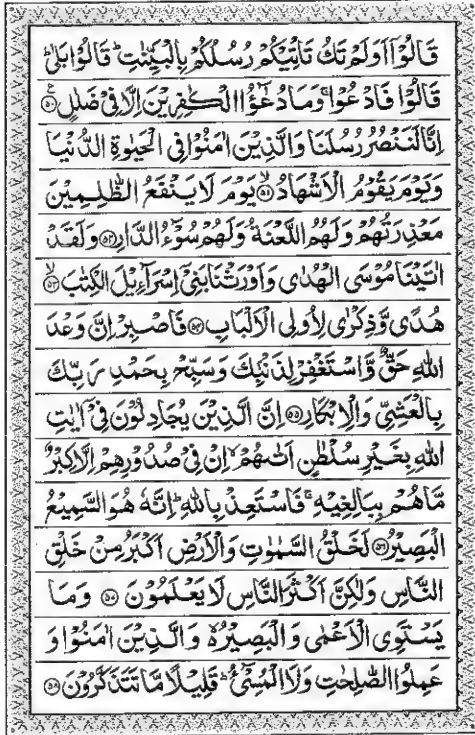 قَالُوْۤا اَوَلَمْ تَكُ تَاْتِيْكُمْ رُسُلُكُمْ بِالْبَيِّنٰتِ ؕ قَالُوْا بَلٰى ؕ
قَالُوْا فَادْعُوْا ۚ وَمَا دُعٰٓؤُا الْكٰفِرِيْنَ اِلَّا فِيْ ضَلٰلٍ ﴿۵۰﴾
اِنَّا لَنَنْصُرُ رُسُلَنَا وَالَّذِيْنَ اٰمَنُوْا فِي الْحَيٰوةِ الدُّنْيَا
وَيَوْمَ يَقُوْمُ الْاَشْهَادُ ﴿۵۱﴾ يَوْمَ لَا يَنْفَعُ الظّٰلِمِيْنَ
مَعْذِرَتُهُمْ وَلَهُمُ اللَّعْنَةُ وَلَهُمْ سُوْٓءُ الدَّارِ ﴿۵۲﴾ وَلَقَدْ
اٰتَيْنَا مُوْسَى الْهُدٰى وَاَوْرَثْنَا بَنِيْۤ اِسْرَآءِيْلَ الْكِتٰبَ ﴿۵۳﴾
هُدًى وَّذِكْرٰى لِاُولِي الْاَلْبَابِ ﴿۵۴﴾ فَاصْبِرْ اِنَّ وَعْدَ
اللّٰهِ حَقٌّ وَّاسْتَغْفِرْ لِذَنْۢبِكَ وَسَبِّحْ بِحَمْدِ رَبِّكَ
بِالْعَشِيِّ وَالْاِبْكَارِ ﴿۵۵﴾ اِنَّ الَّذِيْنَ يُجَادِلُوْنَ فِيْۤ اٰيٰتِ
اللّٰهِ بِغَيْرِ سُلْطٰنٍ اَتٰىهُمْ ۙ اِنْ فِيْ صُدُوْرِهِمْ اِلَّا كِبْرٌ
مَّا هُمْ بِبَالِغِيْهِ ۚ فَاسْتَعِذْ بِاللّٰهِ ؕ اِنَّهٗ هُوَ السَّمِيْعُ
الْبَصِيْرُ ﴿۵۶﴾ لَخَلْقُ السَّمٰوٰتِ وَالْاَرْضِ اَكْبَرُ مِنْ خَلْقِ
النَّاسِ وَلٰكِنَّ اَكْثَرَ النَّاسِ لَا يَعْلَمُوْنَ ﴿۵۷﴾ وَمَا
يَسْتَوِي الْاَعْمٰى وَالْبَصِيْرُ ۙ وَالَّذِيْنَ اٰمَنُوْا وَ
عَمِلُوا الصّٰلِحٰتِ وَلَا الْمُسِيْٓءُ ؕ قَلِيْلًا مَّا تَتَذَكَّرُوْنَ ﴿۵۸﴾